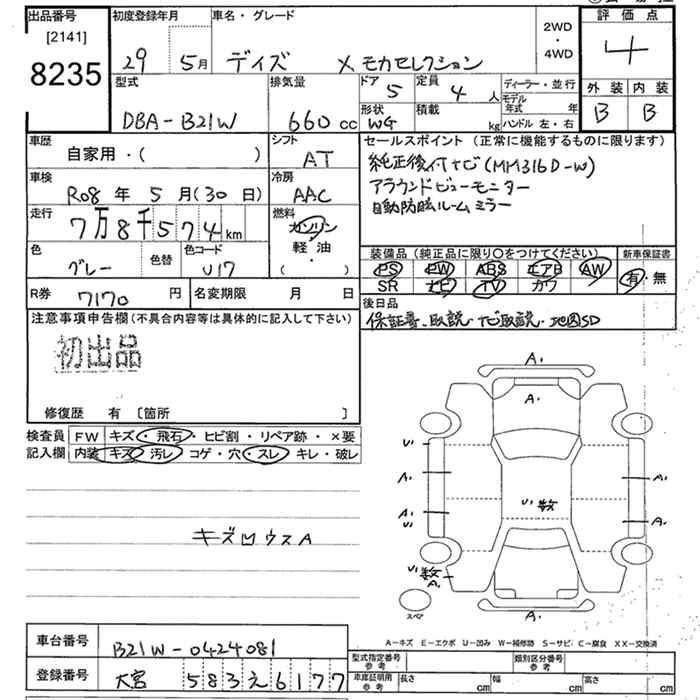 出品番号
[2141]
8235
初度登録年月
29 5月
車名・グレード
デイズ X モカセレクション
2WD
・
4WD
評価点
4
外装 内装
B B
型式
DBA-B21W
排気量
660 cc
ドア 5
定員 4 人
形状 WG
積載 kg
ディーラー・並行
モデル年式 年
ハンドル 左・右
車歴
自家用・( )
シフト
AT
車検
R08 年 5 月(30 日)
冷房
AAC
走行
7万8千574km
燃料
ガソリン
軽油
( )
色
グレー
色替
色コード
U17
R券 7170 円
名変期限 月 日
セールスポイント (正常に機能するものに限ります)
純正後付ナビ(MM316D-W)
アラウンドビューモニター
自動防眩ルームミラー
装備品(純正品に限り○をつけてください)
新車保証書
PS PW ABS エアB AW
SR ナビ TV カワ
有・無
後日品
保証書、取説・ナビ取説・地図SD
注意事項申告欄(不具合内容等は具体的に記入して下さい)
初出品
修復歴 有 [箇所 ]
検査員記入欄
FW キズ・飛石・ヒビ割・リペア跡・×要
内装 キズ・汚レ・コゲ・穴・スレ・キレ・破レ
キズ凹ウスA
A.
A.
U.
A.
A.
U.
U.数
A.
A.
U.数
A.
スペア
A.
A-キズ E-エクボ U-凹み W-補修跡 S-サビ C-腐食 XX-交換済
車台番号
B21W-0424081
登録番号
大宮 583え6177
型式指定番号 参考
類別区分番号 参考
車庫証明用 参考
長さ cm 幅 cm 高さ cm